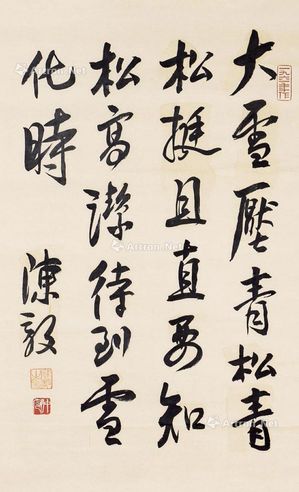 大雪壓青松青
松挺且直要知
松高潔待到雪
化時
陳毅
Artron.Net